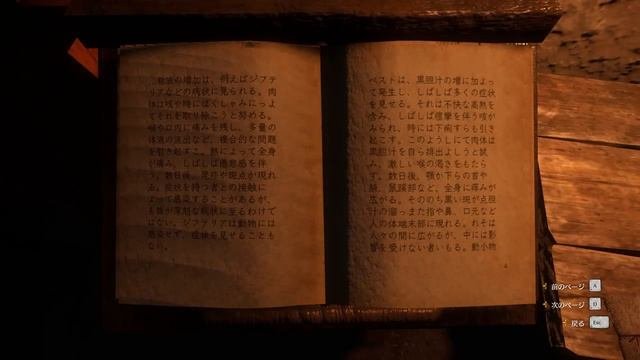 粘液の増加は、例えばジフテ
リアなどの病状に見られる。肉
体は咳や時にはくしゃみによっ
てそれを取り除こうと努める。
喉や口内に痛みを残し、多量の
体液の流出など、複合的な問題
を引き起こす。熱によって全身
が痛み、しばしば倦怠感を伴
う。数日後、足指や斑点が現れ
る。症状を持つ者との接触に
よって感染することがあるが、
も皆が深刻な病状に至るわけで
はない。ジフテリアは動物には
感染せず、症状を見せることも
ない。
ペストは、黒胆汁の増に加よっ
て発生し、しばしば多くの症状
を見せる。それは不快な高熱を
含み、しばしば痙攣を伴う咳が
みられ、時には下痢すらも引き
起こす。このようにして肉体は
黒胆汁を自ら排出ようしと試
み、激しい喉の渇きをもたら
す。数日後、顎か下らの首や
腋、鼠蹊部など、全身に痛みが
広がる。そのち黒い斑が点胆
汁の溜っまた指や鼻、口元など
人の体端末部に現れる。れそは
人々の間に広がるが、中には影
響を受けない者いもる。動小物
前のページ A
次のページ D
戻る Esc